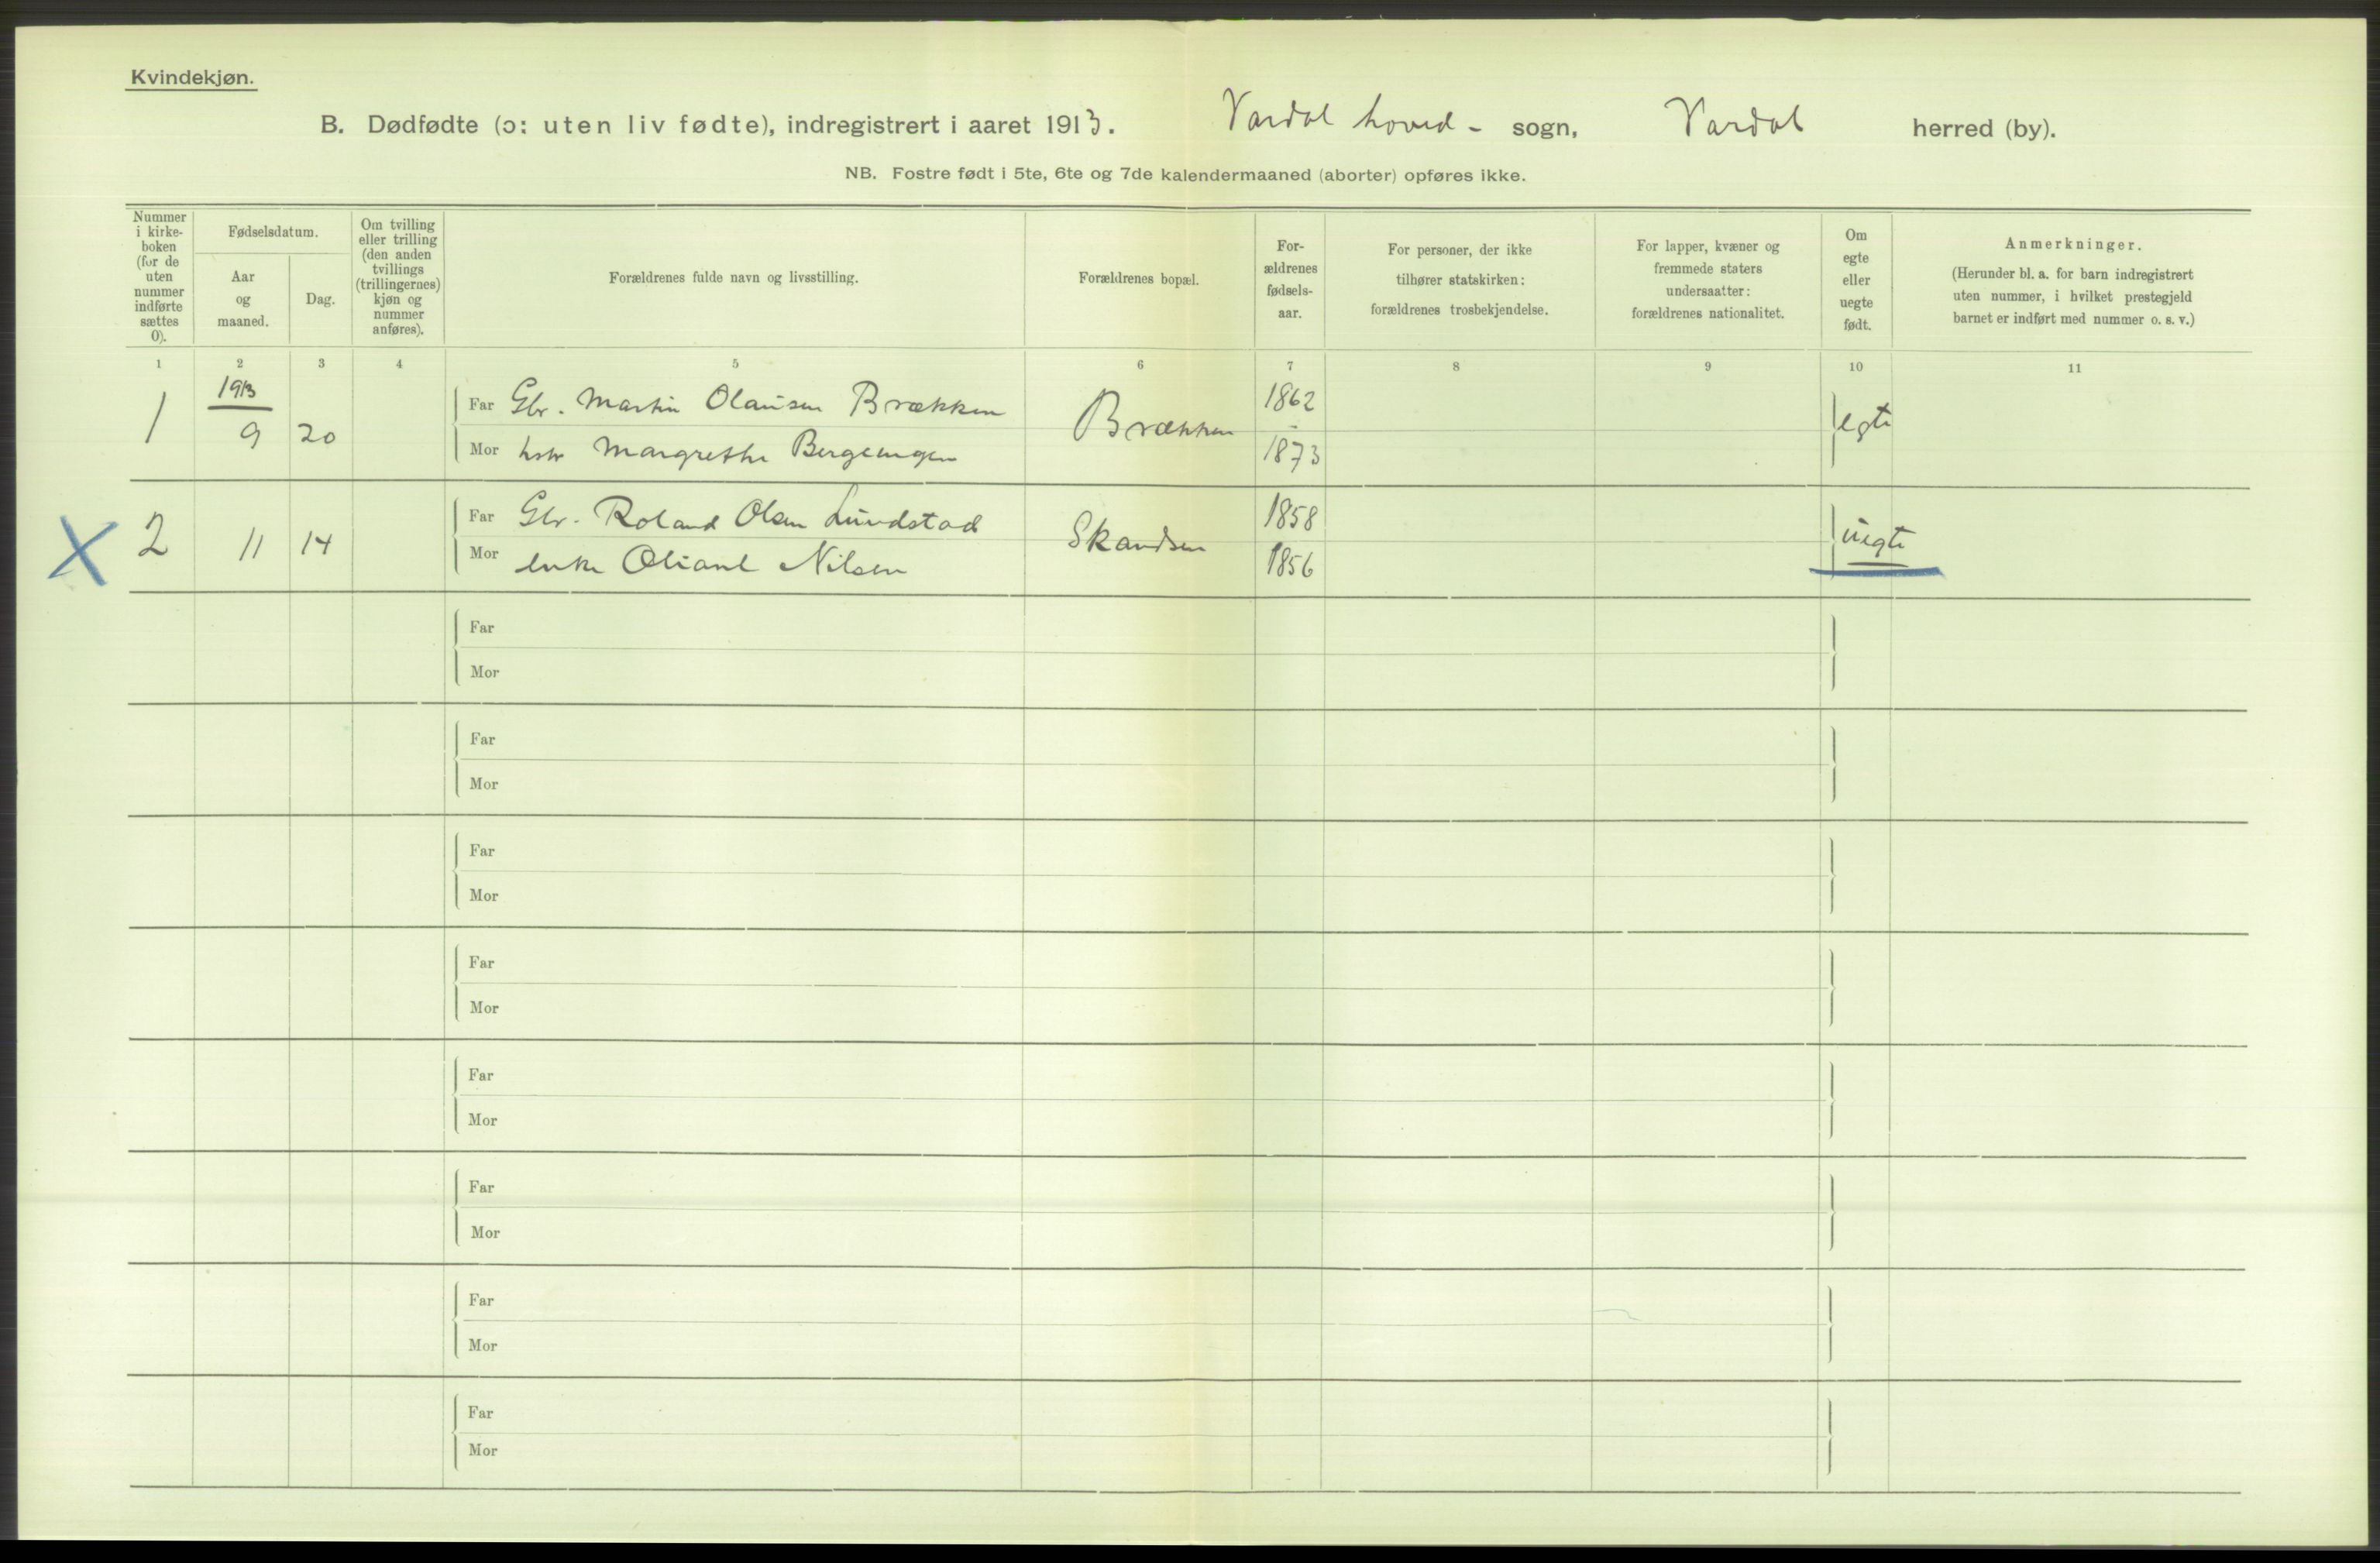 Kvindekjøn.
B. Dødfødte (ɔ: uten liv fødte), indregistrert i aaret 1913. Vardal hoved- sogn, Vardal herred (by).
NB. Fostre født i 5te, 6te og 7de kalendermaaned (aborter) opføres ikke.
Nummer i kirke-boken (for de uten nummer indførte sættes 0).
Fødselsdatum.
Aar og maaned.
Dag.
Om tvilling eller trilling (den anden tvillings (trillingernes) kjøn og nummer anføres).
Forældrenes fulde navn og livsstilling.
Forældrenes bopæl.
For-ældrenes fødsels-aar.
For personer, der ikke tilhører statskirken: forældrenes trosbekjendelse.
For lapper, kvæner og fremmede staters undersaatter: forældrenes nationalitet.
Om egte eller uegte født.
Anmerkninger.
(Herunder bl. a. for barn indregistrert uten nummer, i hvilket prestegjeld barnet er indført med nummer o. s. v.)
1 2 3 4 5 6 7 8 9 10 11
1913
1 9 20 Far Gbr. Martin Olausen Brækken Brækken 1862 egte
Mor hstr Margrethe Bergeengen 1873
X 2 11 14 Far Gbr. Roland Olsen Lundstad Skandsen 1858 uegte
Mor enke Oliane Nilsen 1856
Far
Mor
Far
Mor
Far
Mor
Far
Mor
Far
Mor
Far
Mor
Far
Mor
Far
Mor